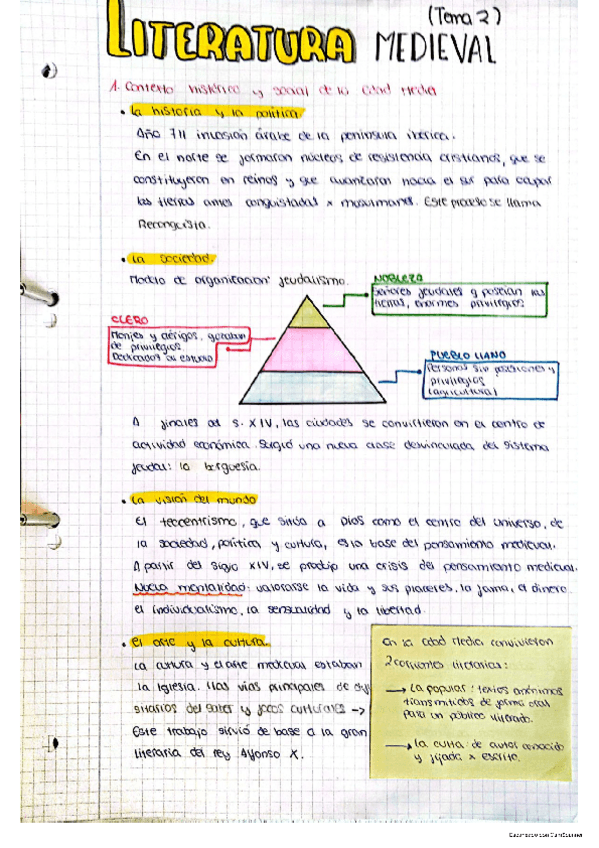 (Tema 2)
LITERATURA MEDIEVAL
1. Contexto histórico y social de la Edad Media
• La historia y la política.
Año 711 invasión árabe de la península ibérica.
En el norte se formaron núcleos de resistencia cristianos, que se
constituyeron en reinos y que avanzaron hacia el sur para ocupar
las tierras antes conquistadas x musulmanes. Este proceso se llama
Reconquista.
• La sociedad.
Modelo de organización feudalismo.
NOBLEZA
Señores feudales y poseían las
tierras, enormes privilegios
CLERO
Monjes y clérigos, gozaban
de privilegios
Dedicados al estudio
PUEBLO LLANO
Personas sin posesiones y
privilegios
(agricultura)
A finales del s. XIV, las ciudades se convirtieron en el centro de
actividad económica. Surgió una nueva clase desvinculada del sistema
feudal: la burguesía.
• La visión del mundo
El teocentrismo, que sitúa a Dios como el centro del universo, de
la sociedad, política y cultura, es la base del pensamiento medieval.
A partir del siglo XIV, se produjo una crisis del pensamiento medieval.
Nueva mentalidad: valorarse la vida y sus placeres, la fama, el dinero
el individualismo, la sensualidad y la libertad.
• El arte y la cultura.
La cultura y el arte medieval estaban
la Iglesia. Las vías principales de
sitarios del saber y focos culturales →
Este trabajo sirvió de base a la gran
literaria del rey Alfonso X.
En la Edad Media convivieron
2 corrientes literarias:
→ La popular: textos anónimos
transmitidos de forma oral
para un público iletrado.
→ La culta: de autor conocido
y fijada x escrito.
Escaneado con CamScanner